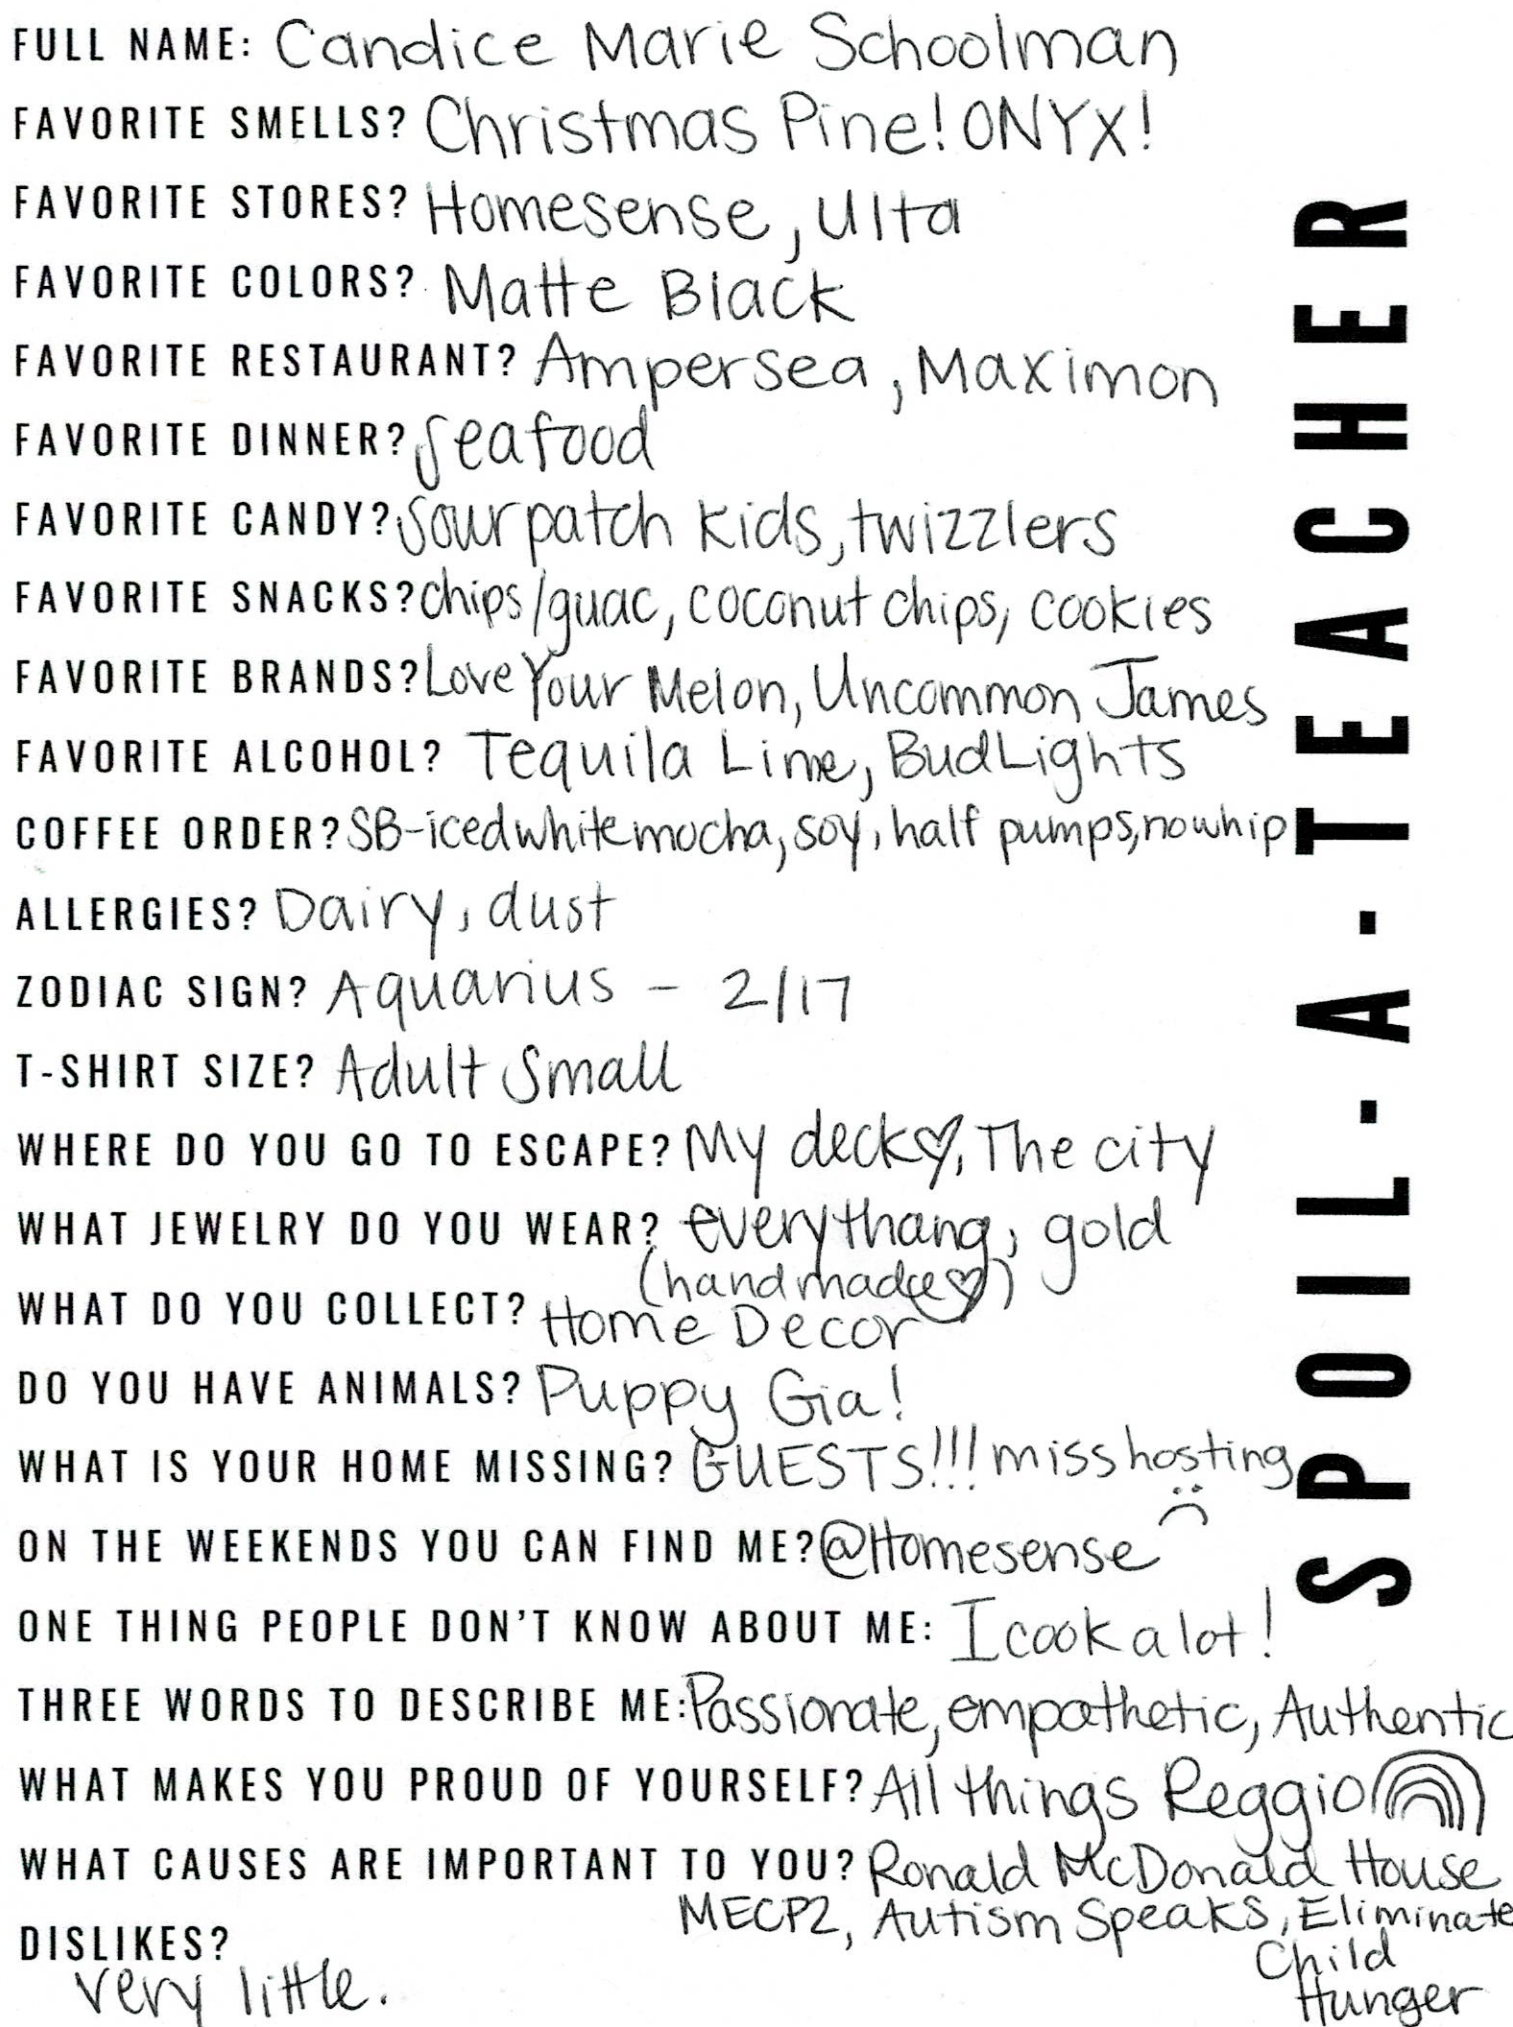 FULL NAME: Candice Marie Schoolman
FAVORITE SMELLS? Christmas Pine! ONYX!
FAVORITE STORES? Homesense, Ulta
FAVORITE COLORS? Matte Black
FAVORITE RESTAURANT? Ampersea, Maximon
FAVORITE DINNER? Seafood
FAVORITE CANDY? Sour patch kids, twizzlers
FAVORITE SNACKS? chips/guac, coconut chips, cookies
FAVORITE BRANDS? Love Your Melon, Uncommon James
FAVORITE ALCOHOL? Tequila Lime, Bud Lights
COFFEE ORDER? SB-iced white mocha, soy, half pumps, no whip
ALLERGIES? Dairy, dust
ZODIAC SIGN? Aquarius - 2/17
T-SHIRT SIZE? Adult Small
WHERE DO YOU GO TO ESCAPE? My deck♡, The city
WHAT JEWELRY DO YOU WEAR? everythang, gold
(handmade♡)
WHAT DO YOU COLLECT? Home Decor
DO YOU HAVE ANIMALS? Puppy Gia!
WHAT IS YOUR HOME MISSING? GUESTS!!! miss hosting :(
ON THE WEEKENDS YOU CAN FIND ME? @Homesense
ONE THING PEOPLE DON'T KNOW ABOUT ME: I cook a lot!
THREE WORDS TO DESCRIBE ME: Passionate, empathetic, Authentic
WHAT MAKES YOU PROUD OF YOURSELF? All things Reggio
WHAT CAUSES ARE IMPORTANT TO YOU? Ronald McDonald House
MECP2, Autism Speaks, Eliminate
Child
Hunger
DISLIKES?
very little.
SPOIL-A-TEACHER